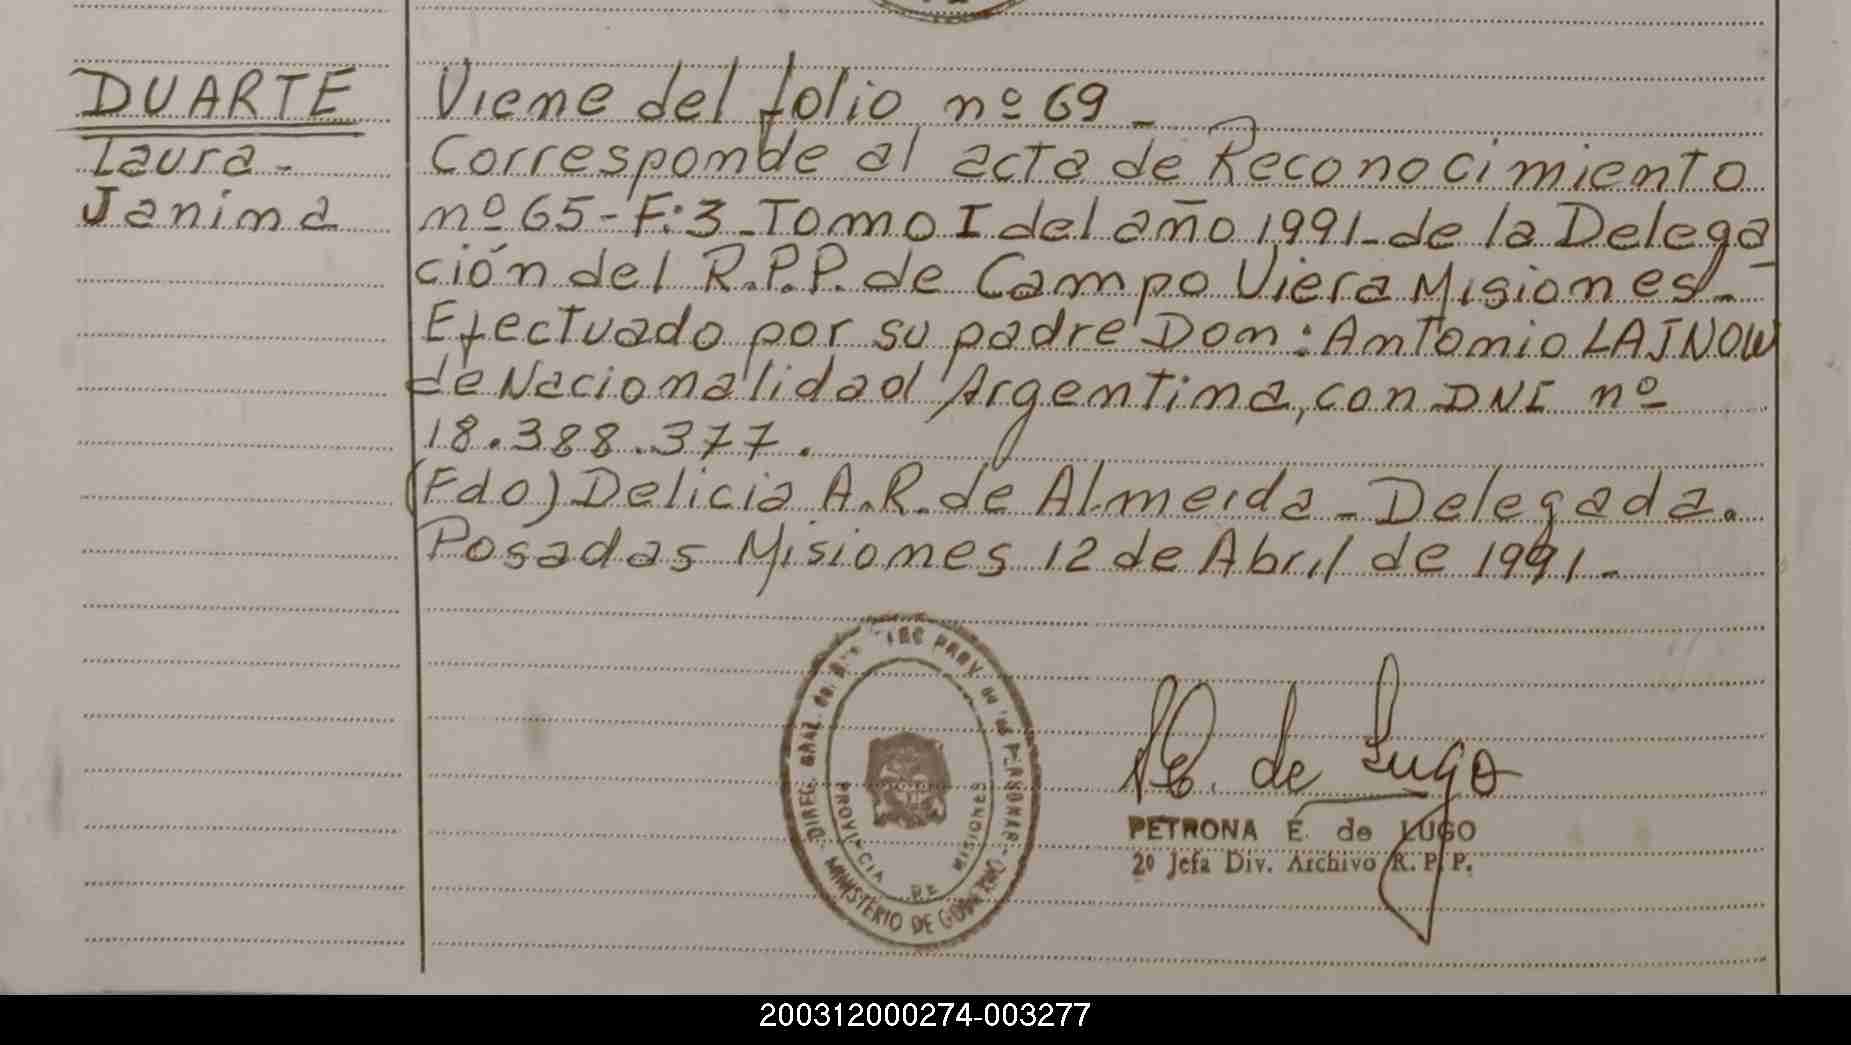 DUARTE
Laura-
Janina
Viene del folio nº 69_
Corresponde al acta de Reconocimiento
nº 65-F:3_Tomo I del año 1991_de la Delega
ción del R.P.P. de Campo Viera Misiones_
Efectuado por su padre Don: Antonio LAJNOW
de Nacionalidad Argentina, con DNI nº
18.388.377.
(Fdo) Delicia A.R. de Almeida_Delegada.
Posadas Misiones 12 de Abril de 1991_
DIREC. GRAL. DEL PROV. DE LAS PERSONAS
MINISTERIO DE GOBIERNO
PROVINCIA DE MISIONES
P.E. de Lugo
PETRONA E. de LUGO
2º Jefa Div. Archivo R. P. P.
200312000274-003277